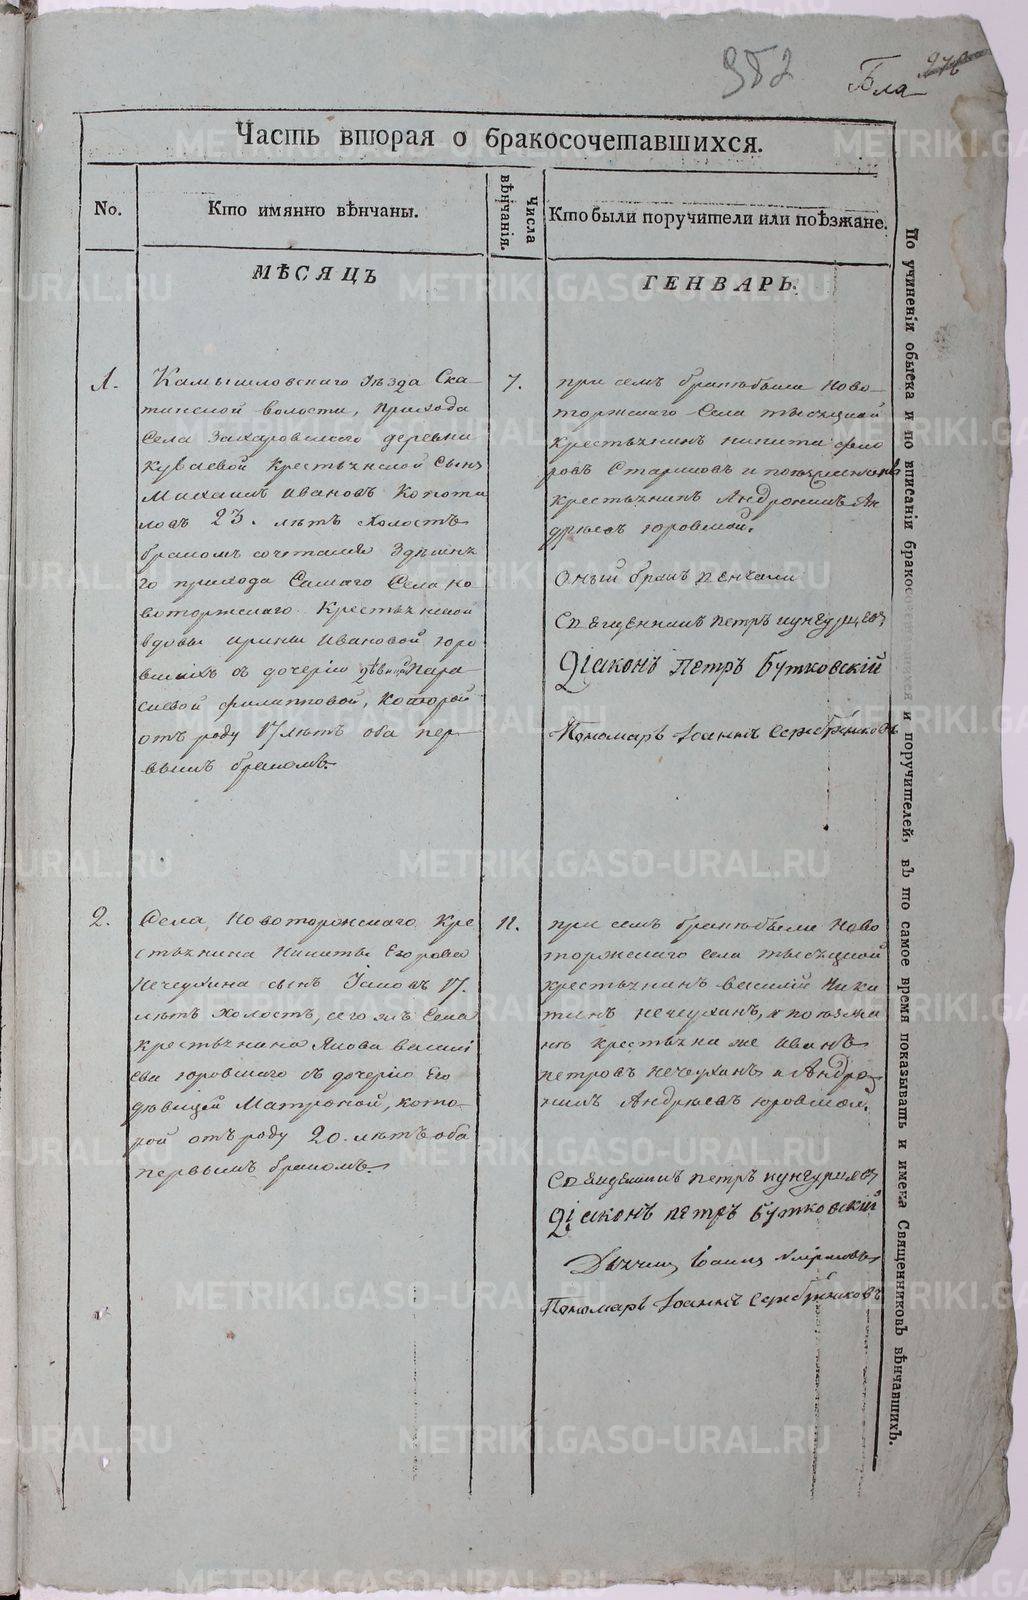 952
Бла
Часть вторая о бракосочетавшихся.
No.
Кто имянно вѣнчаны.
Числа вѣнчанія.
Кто были поручители или поѣзжане.
МѢСЯЦЪ
ГЕНВАРЬ.
1.
Камышловскаго Уѣзда Ска-
тинской волости, прихода
Села Захаровскаго деревни
Куваевой Крестьянской Сынъ
Михаилъ Ивановъ Копоти
ловъ 23. лѣтъ Холостъ
бракомъ сочетался Здѣшня
го прихода Самаго Села но
воторжскаго Крестьянской
вдовы Ирины Ивановой юро
вскихъ съ дочерію дѣвицей Пара
скевой филипповой, Которой
отъ роду 17 лѣтъ оба пер-
вымъ бракомъ.
7.
при семъ бракѣ были Ново-
торжскаго Села тысяцкой
Крестьянинъ никита
Стариковъ и
крестьянинъ Андроникъ Ан
дрѣевъ юровской.
Оный бракъ венчали
Священникъ петръ кунгурцевъ
Діаконъ Петръ Бутковскій
Пономарь Іоаннъ Серебрениковъ
2.
Села Новоторжскаго Кре
стьянина Никиты Егорова
Нечеухина сынъ Іаковъ 17.
лѣтъ Холостъ, сего жъ Села
крестьянина Якова василі
ева юровскаго съ дочерію его
дѣвицей Матроной, кото-
рой отъ роду 20. лѣтъ оба
первымъ бракомъ.
11.
при семъ бракѣ были Ново
торжскаго села тысяцкой
крестьянинъ василій Ники
тинъ нечеухинъ, и поѣзжа
не крестьяна же Иванъ
петровъ нечеухинъ и Андро-
никъ Андрѣевъ юровской.
Священникъ петръ кунгурцевъ
Діаконъ петръ Бутковскій
Дьячекъ Іоаннъ
Пономарь Іоаннъ Серебрениковъ
По учиненіи обыска и по вписаніи бракосочетавшихся и поручителей, въ то самое время показывать и имена Священниковъ вѣнчавшихъ.
METRIKI.GASO-URAL.RU